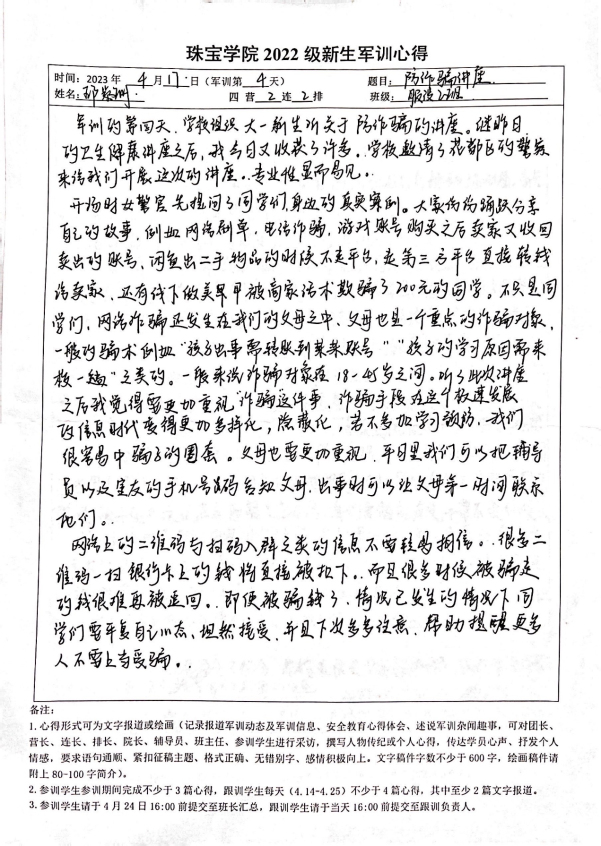 珠宝学院 2022 级新生军训心得
时间：2023 年 4 月 17 日（军训第 4 天） 题目：防诈骗讲座
姓名： 四 营 2 连 2 排 班级：服设2班
军训的第四天，学校组织大一新生听关于防诈骗的讲座。继昨日
的卫生健康讲座之后，我今日又收获了许多。学校邀请了花都区的警察
来给我们开展这次的讲座，专业性显而易见。
开场时女警官先提问了同学们身边的真实案例。大家纷纷踊跃分享
自己的故事，例如网络刷单，电话诈骗，游戏账号购买之后卖家又收回
卖出的账号，闲鱼出二手物品的时候不走平台，走第三方平台直接转钱
给卖家，还有线下做美甲被商家话术欺骗了200元的同学。不只是同
学们，网络诈骗还发生在我们的父母之中，父母也是一个重点的诈骗对象，
一般的骗术例如“孩子出事需转账到某某账号”“孩子的学习原因需来
校一趟”之类的。一般来说诈骗对象在18-45岁之间。听了此次讲座
之后我觉得需更加重视“诈骗”这件事，诈骗手段在这个极速发展
的信息时代变得更加多样化，隐蔽化，若不多加学习预防，我们
很容易中骗子的圈套。父母也需更加重视，平日里我们可以把辅导
员以及室友的手机号码告知父母，出事时可以让父母第一时间联系
他们。
网络上的二维码与扫码入群之类的信息不要轻易相信。很多二
维码一扫银行卡上的钱将直接被扣下。而且很多时候被骗走
的钱很难再被追回。即使被骗钱了，情况已发生的情况下同
学们要平复自己心态，坦然接受，并且下次多多注意，帮助提醒更多
人不要上当受骗。
备注：
1. 心得形式可为文字报道或绘画（记录报道军训动态及军训信息、安全教育心得体会、述说军训杂闻趣事，可对团长、
营长、连长、排长、院长、辅导员、班主任、参训学生进行采访，撰写人物传纪或个人心得，传达学员心声、抒发个人
情感，要求语句通顺、紧扣征稿主题、格式正确、无错别字、感情积极向上。文字稿件字数不少于 600 字，绘画稿件请
附上 80-100 字简介）。
2. 参训学生参训期间完成不少于 3 篇心得，跟训学生每天（4.14-4.25）不少于 4 篇心得，其中至少 2 篇文字报道。
3. 参训学生请于 4 月 24 日 16:00 前提交至班长汇总，跟训学生请于当天 16:00 前提交至跟训负责人。